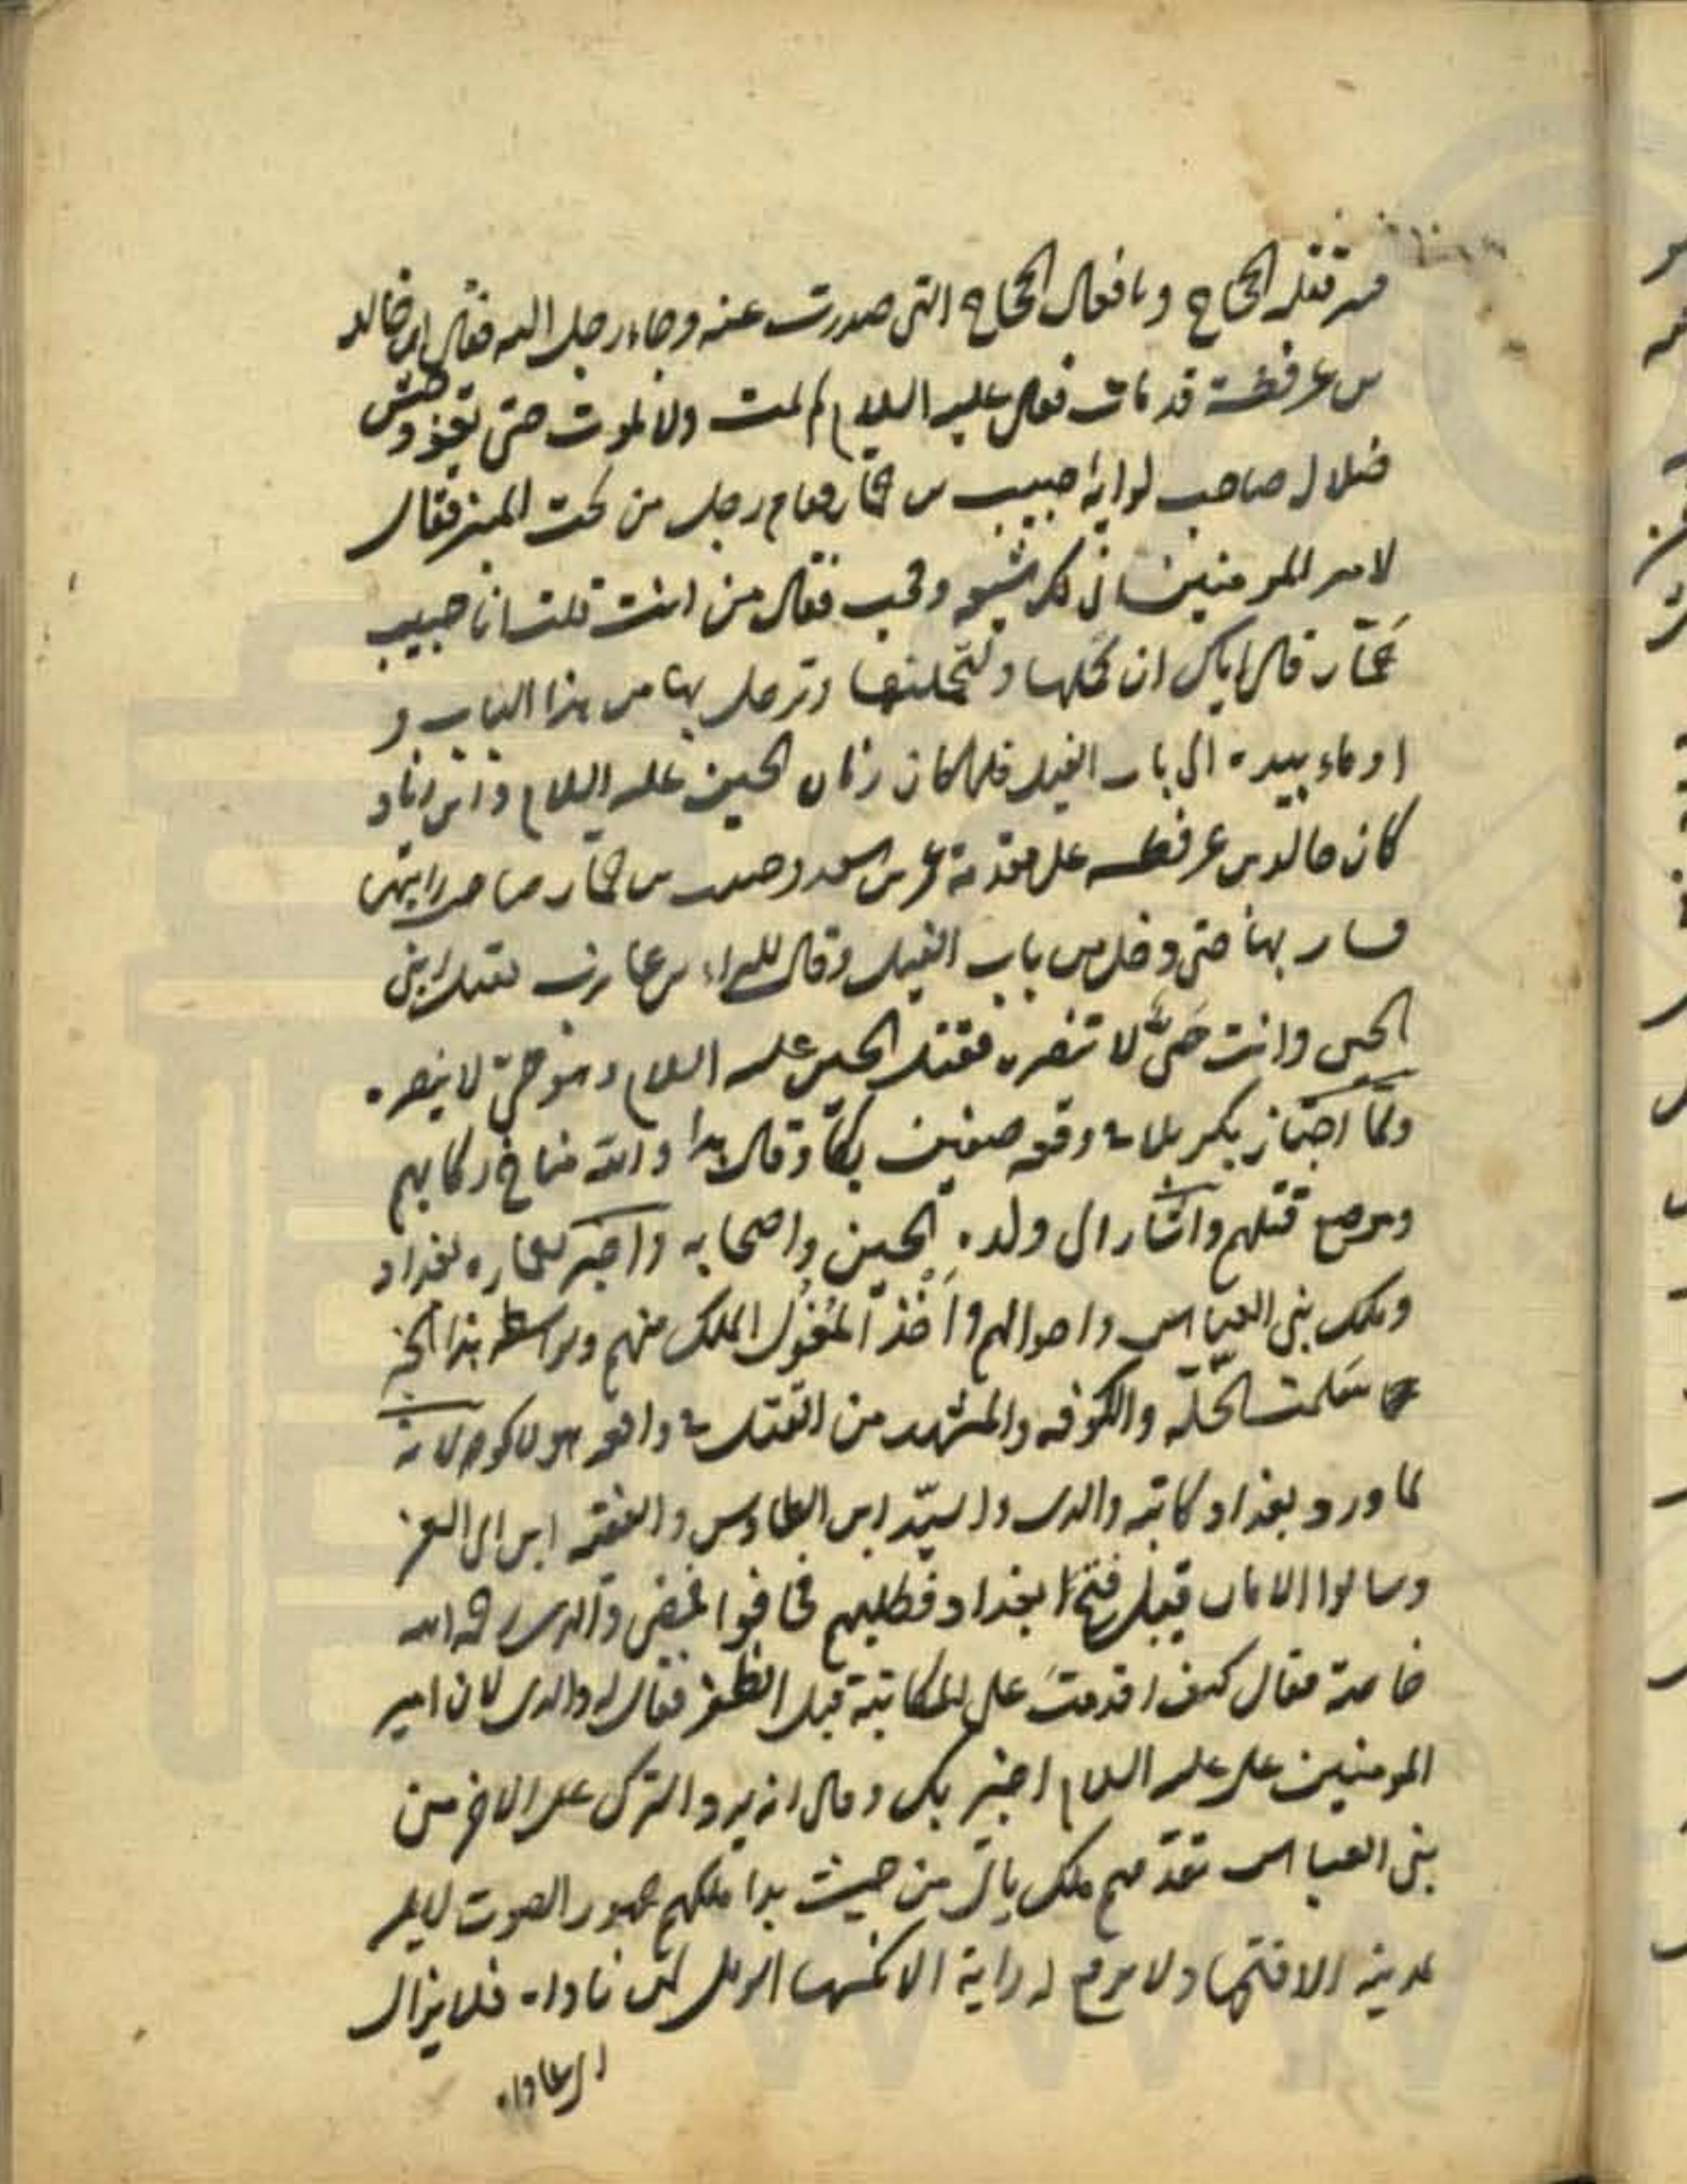 فقتله الحجاج وبافعال الحجاج التي صدرت عنه وجاء رجل اليه فقال ان خالد
بن عرفطة قد مات فقال عليه السلام لم يمت ولا يموت حتى يقود جيش
ضلال صاحب لوائه حبيب بن جماز فقام رجل من تحت المنبر فقال
لامير المومنين اني لك شيعه ومحب فقال من انت قلت انا حبيب
جماز قال اياك ان تحملها ولتحملنها وتدخل بها من هذا الباب و
اوماء بيده الى باب الفيل فلما كان زمان الحسين عليه السلام وابن زياد
كان خالد بن عرفطه على مقدمة عمر بن سعد وحبيب بن جماز صاحب رايته
فسار بها حتى دخل من باب الفيل وقال للبراء بن عازب يقتل ابني
الحسين وانت حيٌّ لا تنصره فقتل الحسين عليه السلام وهو حيّ لا ينصره
ولمّا اجتاز بكربلا في وقعه صفين بكا وقال هذا والله مناخ ركابهم
وموضع قتلهم واشار الى ولده الحسين واصحابه واخبر بعمارة بغداد
وملك بني العباس واحوالهم واخذ المغول الملك منهم وبواسطة هذا الخبر
سَلمت الحلّة والكوفه والمشهد من القتل في واقعه هولاكو لانه
لما ورد بغداد كاتبه والدي والسيّد ابن الطاوس والفقيه ابن ابي العز
وسالوا الامان قبل فتح بغداد فطلبهم فخافوا فمضى والدي رحمه الله
خاصة فقال كيف اقدمتَ على المكاتبة قبل الظفر فقال له والدي لان امير
المومنين علي عليه السلام اخبر بك وقال انه يرد الترك على الاخير من
بني العباس يقدمهم ملك ياتي من حيث بدا ملكهم جهور الصوت لا يمر
بمدينه الا فتحها ولا يرفع له راية الا نكسها الويل لمن ناواه فلا يزال